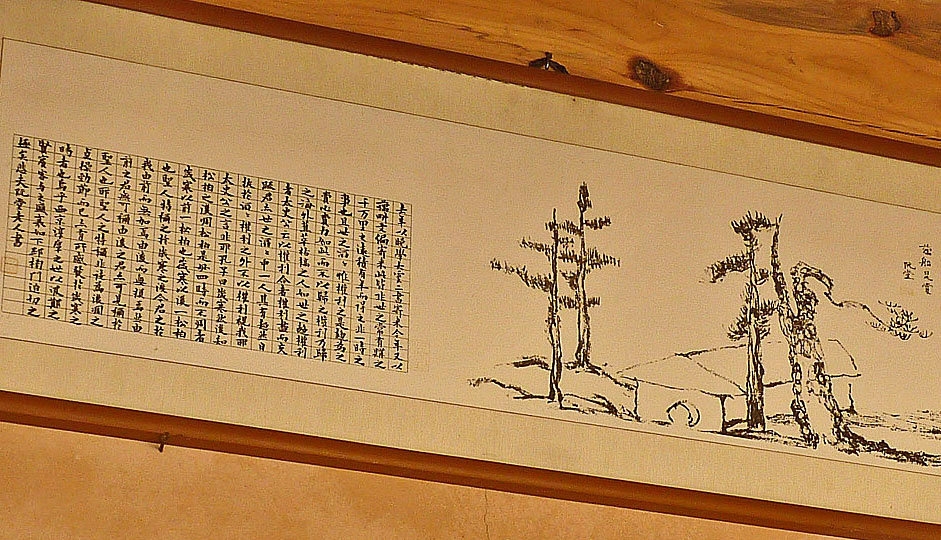 藕船是賞
阮堂
去年以晚學大雲二書寄來今年又以
藕畊文編寄來此皆非世之常有購之
千萬里之遠積有年而得之非一時之
事也且世之滔滔惟權利之是趨爲之
費心費力如此而不以歸之權利乃歸
之海外蕉萃枯槁之人如世之趨權利
者太史公云以權利合者權利盡而交
踈君亦世之滔滔中一人其有超然自
拔於滔滔權利之外不以權利視我耶
太史公之言非耶孔子曰歲寒然後知
松栢之後凋松栢是毌四時而不凋者
歲寒以前一松栢也歲寒以後一松栢
也聖人特稱之於歲寒之後今君之於
我由前而無加焉由後而無損焉然由
前之君無可稱由後之君亦可見稱於
聖人也耶聖人之特稱非徒爲後凋之
貞操勁節而已亦有所感發於歲寒之
時者也烏乎西京淳厚之世以汲鄭之
賢賓客與之盛衰如下邳榜門迫切之
極矣悲夫阮堂老人書